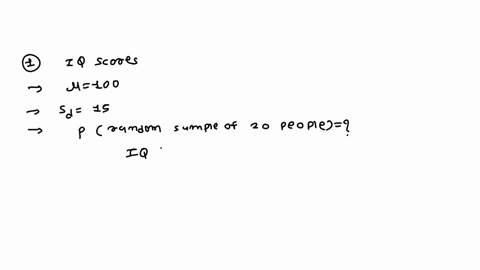 ① IQ scores
→ μ=100
→ Sd = 15
→ P (random sumple of 20 people)=?
IQ